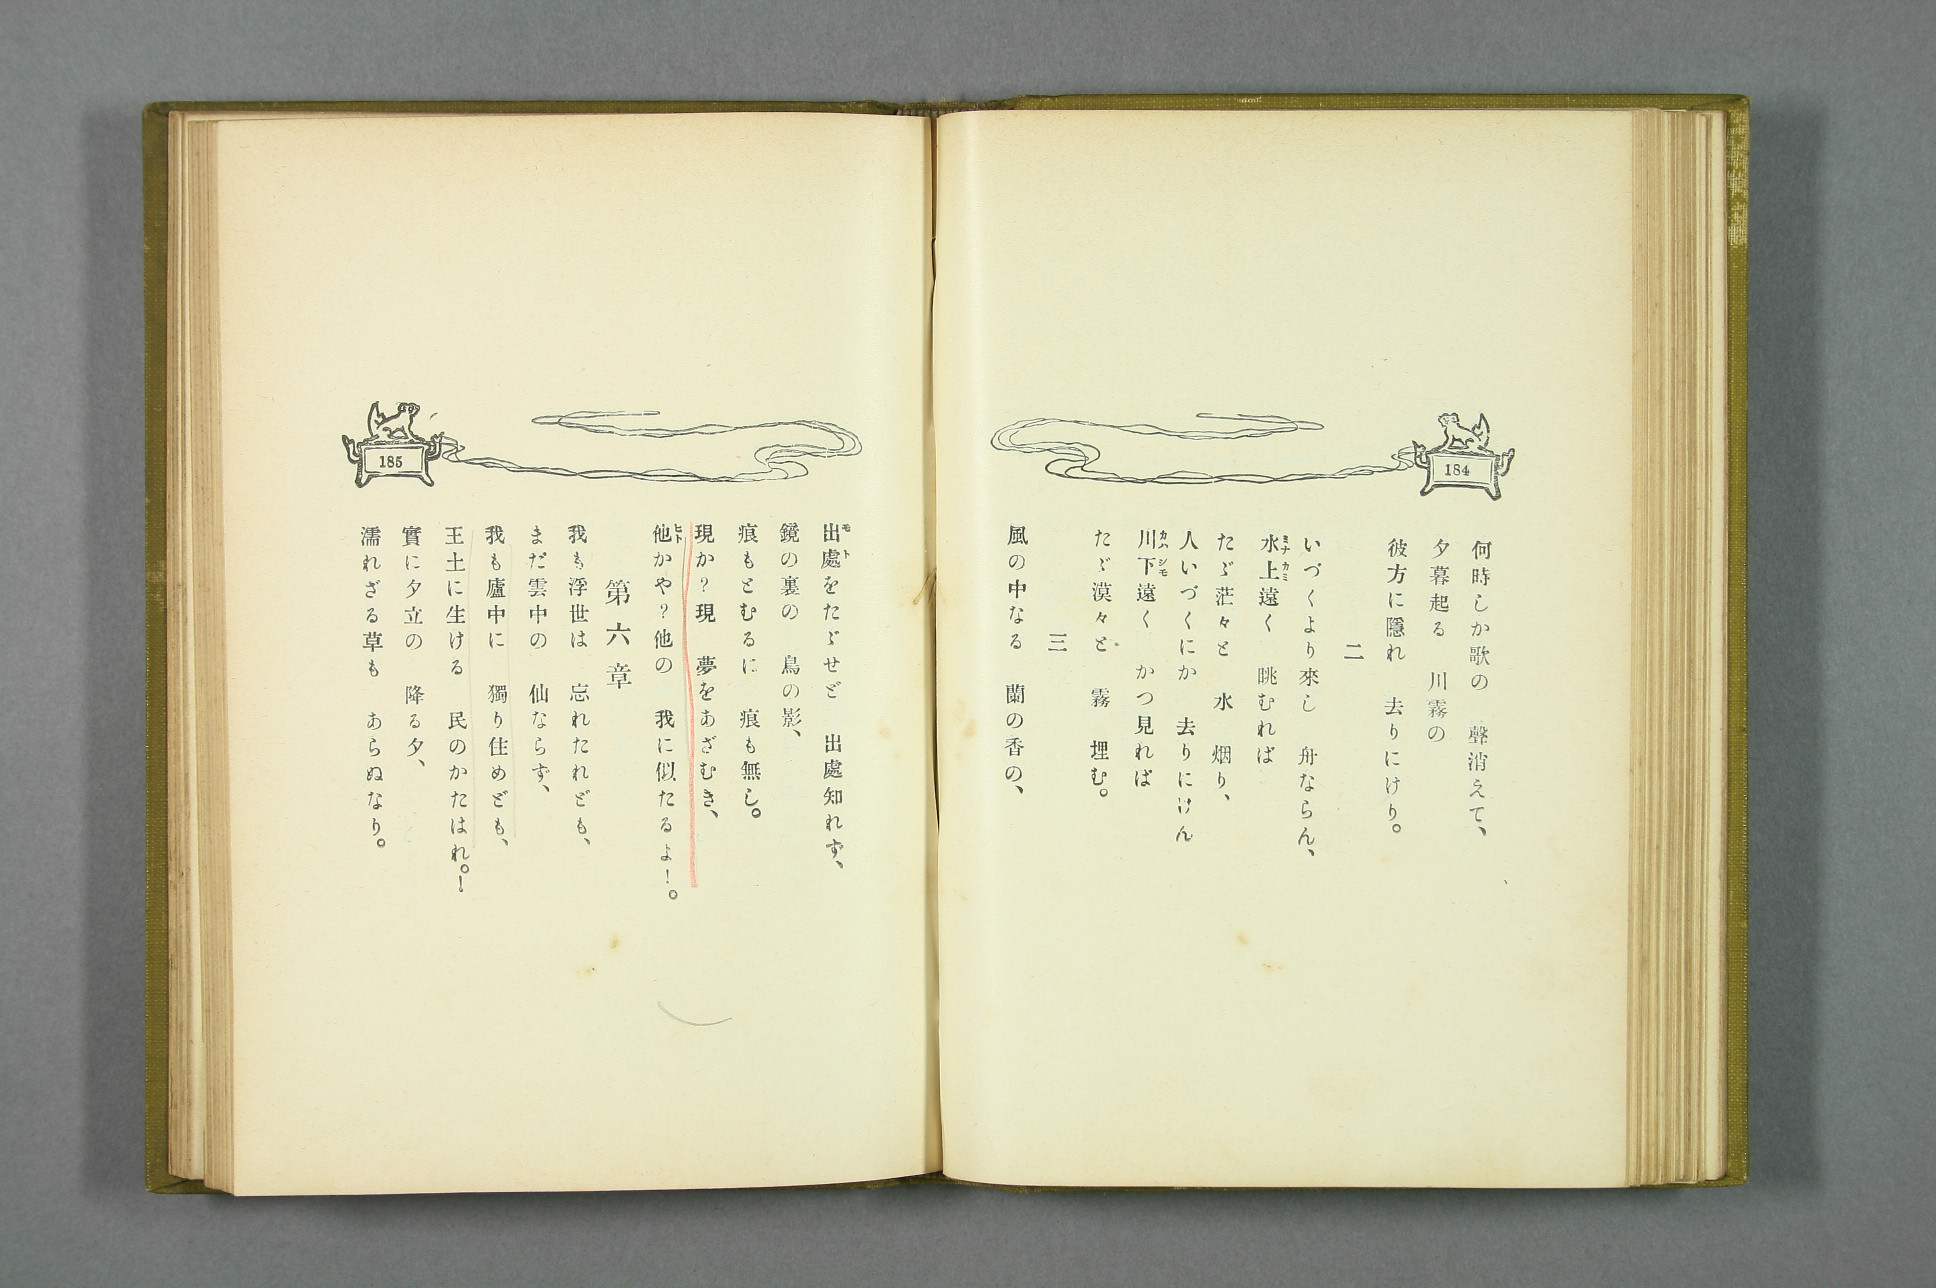 184
何時しか歌の　聲消えて、
夕暮起る　川霧の
彼方に隱れ　去りにけり。
二
いづくより來し　舟ならん、
水上遠く　眺むれば
ミナカミ
たゞ茫々と　水　烟り、
人いづくにか　去りにけん
川下遠く　かつ見れば
カハシモ
たゞ漠々と　霧　埋む。
三
風の中なる　蘭の香の、
出處をたゞせど　出處知れず、
モト
鏡の裏の　鳥の影、
痕もとむるに　痕も無し。
現か？現　夢をあざむき、
他かや？他の　我に似たるよ！。
ヒト
第六章
我も浮世は　忘れたれども、
まだ雲中の　仙ならず、
我も廬中に　獨り住めども、
王土に生ける　民のかたはれ。！
實に夕立の　降る夕、
濡れざる草も　あらぬなり。
185